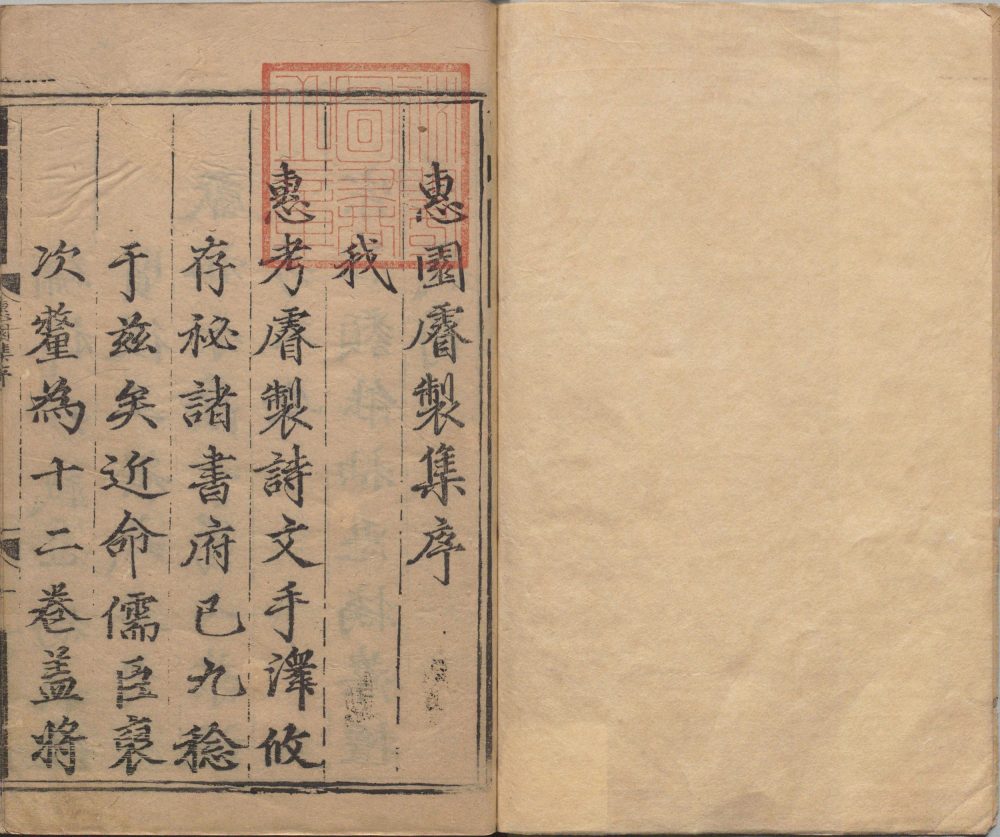 惠園睿製集序
我
惠考睿製詩文手澤攸
存秘諸書府已九稔
于茲矣近命儒臣裒
次釐為十二卷蓋將